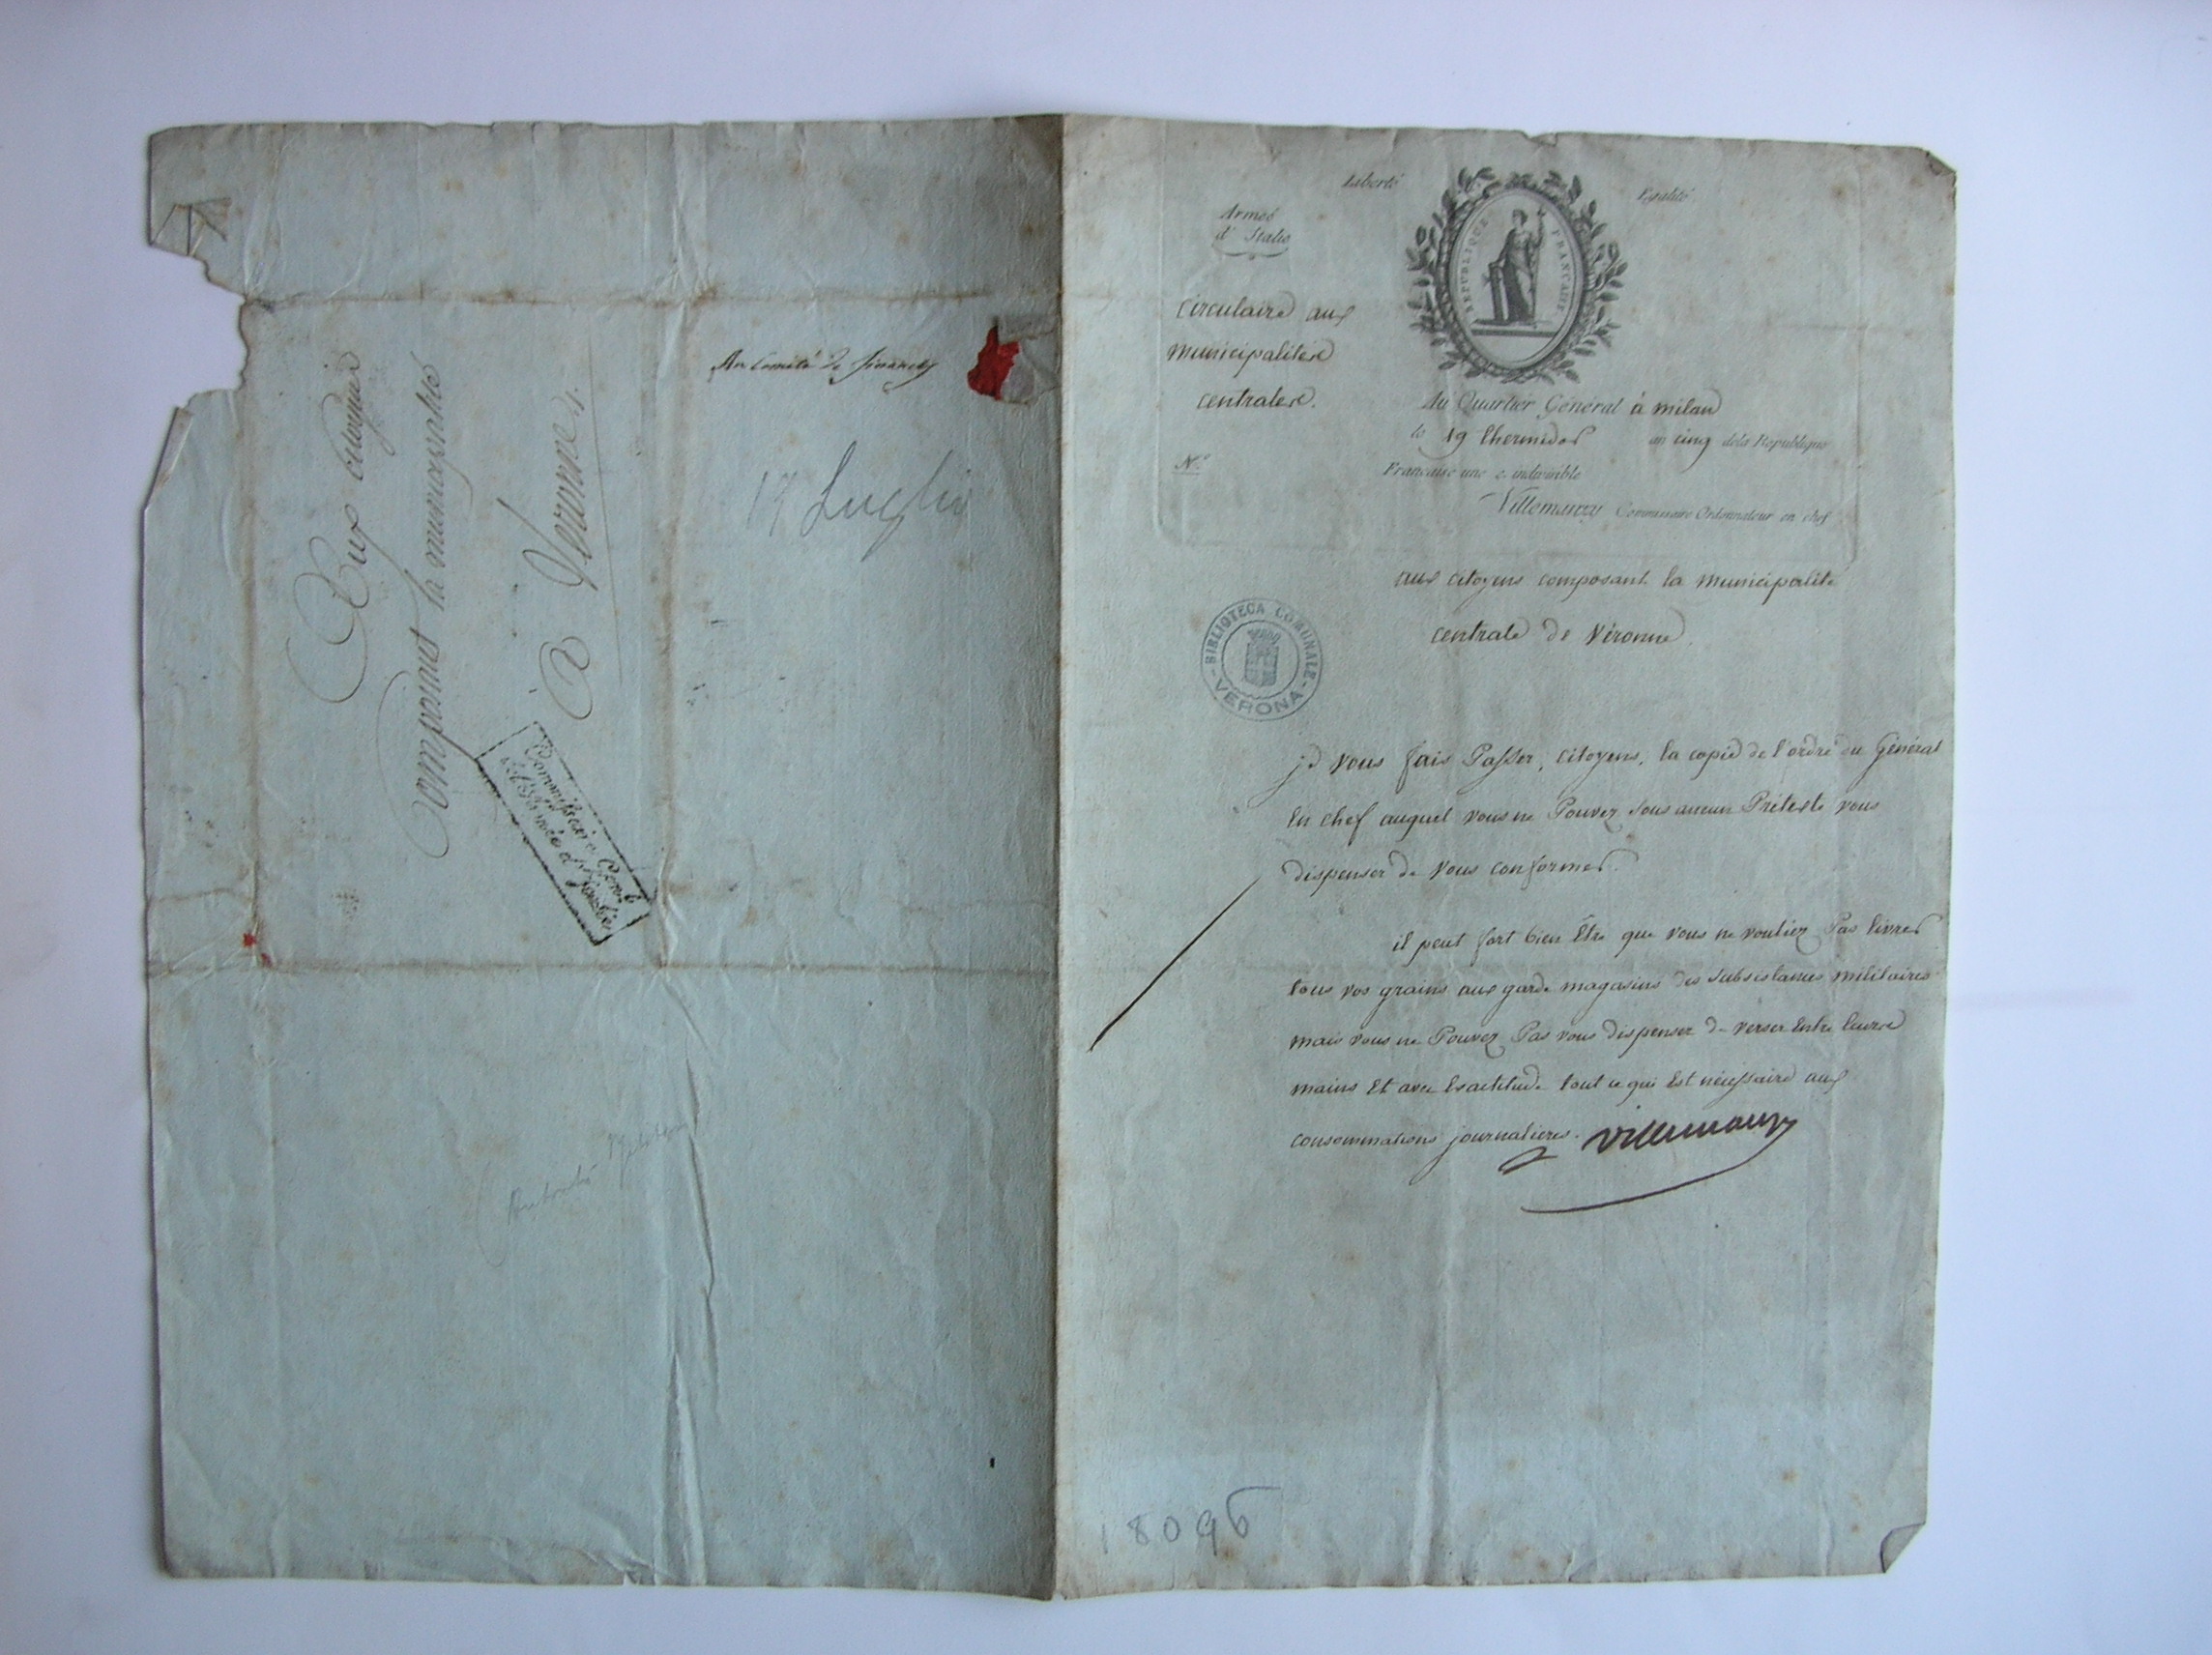 Aux citoyens
Composant la municipalité
à Veronne.
Commissaire
de l'Armée d'Italie
Au Comité de finances
19 Luglio
Liberté
Egalité
Armée
d'Italie
REPUBLIQUE FRANCAISE
Circulaire aux
Municipalités
centrales.
Au Quartier Général à Milan
le 19 thermidor an cinq de la République
N.º
Française une & indivisible
Villemanzy Commissaire Ordonnateur en chef
aux citoyens composant la municipalité
centrale de Véronne.
BIBLIOTECA COMUNALE
- VERONA -
je vous fais Passer, citoyens, la copie de l'ordre du Général
En chef auquel vous ne Pouvez sous aucun Préteste vous
dispenser de vous conformer.
il peut fort bien Etre que vous ne vouliez Pas livrer
tous vos grains aux garde magasins des subsistances militaires
mais vous ne Pouvez Pas vous dispenser de verser Entre leurs
mains Et avec Exactitude tout ce qui Est nécessaire aux
consommations journalieres. Villemanzy
18096